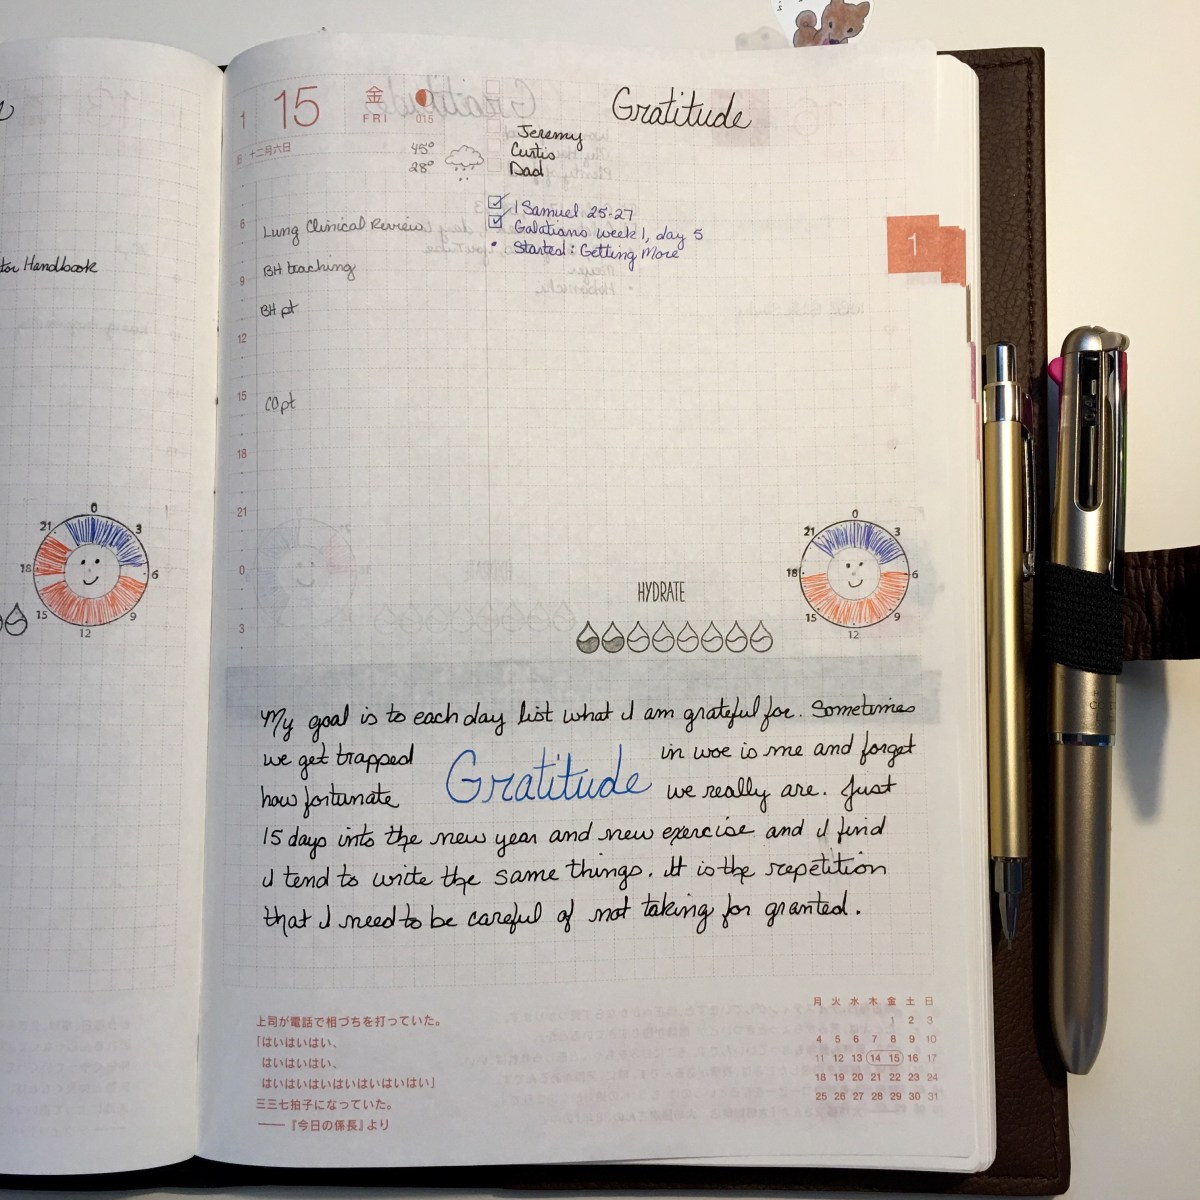 1 15 金 FRI 015
日 十二月六日
Gratitude
45°
28°
Jeremy
Curtis
Dad
1 Samuel 25-27
Galatians week 1, day 5
• Started: Getting More
6 Lung Clinical Review
9 BH teaching
BH pt
12
15 CO pt
18
21
0
3
1
tor Handbook
0
3
6
9
12
15
18
21
HYDRATE
0
3
6
9
12
15
18
21
My goal is to each day list what I am grateful for. Sometimes
we get trapped in woe is me and forget
Gratitude
how fortunate we really are. Just
15 days into the new year and new exercise and I find
I tend to write the same things. It is the repetition
that I need to be careful of not taking for granted.
上司が電話で相づちを打っていた。
「はいはいはい、
はいはいはい、
はいはいはいはいはいはいはい」
三三七拍子になっていた。
——『今日の係長』より
月 火 水 木 金 土 日
1 2 3
4 5 6 7 8 9 10
11 12 13 14 15 16 17
18 19 20 21 22 23 24
25 26 27 28 29 30 31